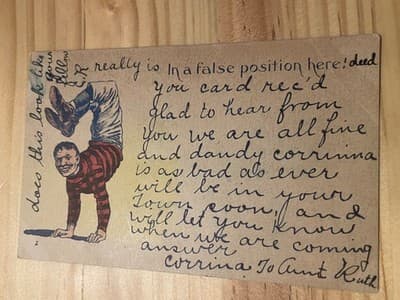 I'm really is In a false position here! deed
you card rec'd
glad to hear from
you we are all fine
and dandy corrinna
is as bad as ever
will be in your
Town soon, and
will let you know
when we are coming
answer
corrina To Aunt Ruth
"does this look like your fellow